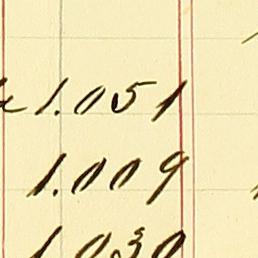 1.051
1.009
1.030